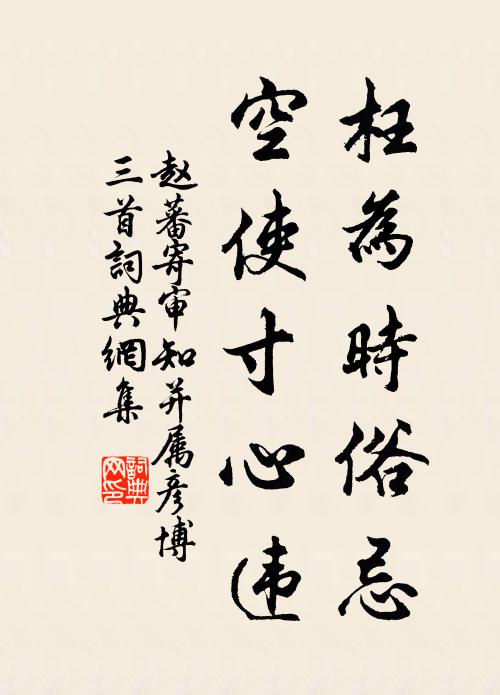 枉為時俗忌
空使寸心违
赵蕃寄审知并属彦博
三首詞典網集
詞典
网印